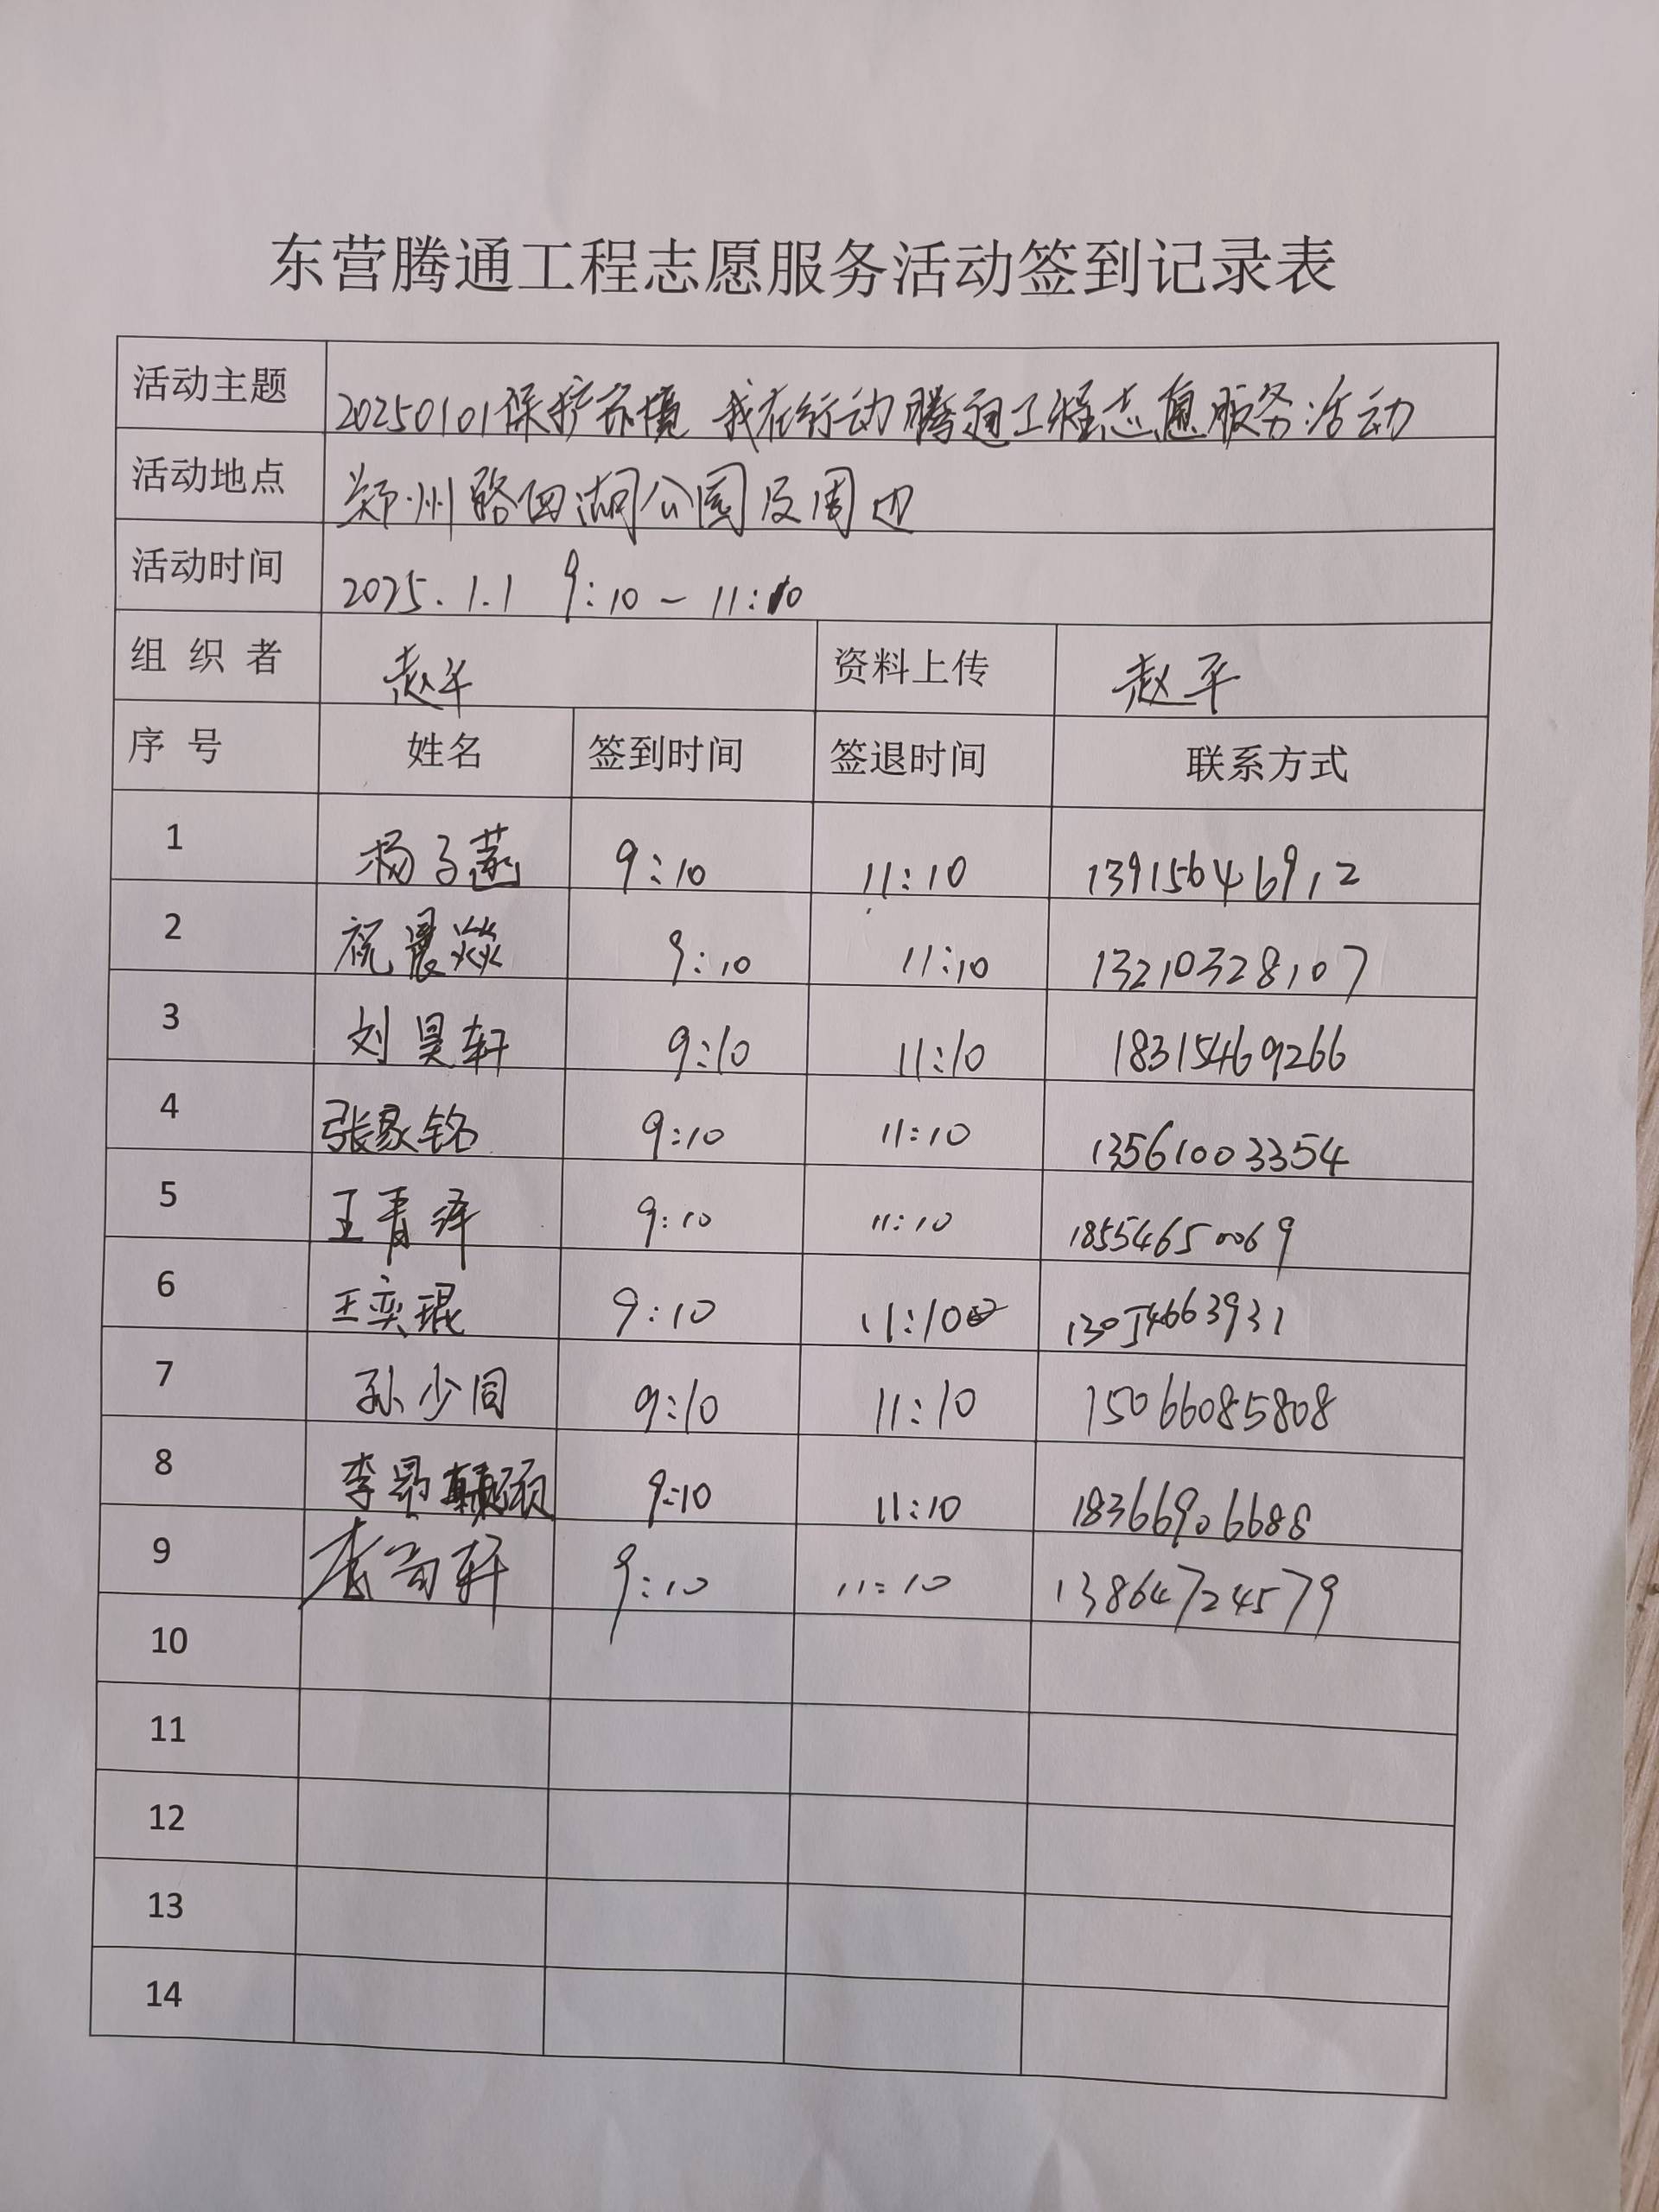 东营腾通工程志愿服务活动签到记录表
活动主题 20250101保护环境 我在行动腾通工程志愿服务活动
活动地点 郑州路西湖公园及周边
活动时间 2025.1.1 9:10-11:10
组织者 赵平 资料上传 赵平
序号 姓名 签到时间 签退时间 联系方式
1 杨子菡 9:10 11:10 13915646912
2 祝晨焱 9:10 11:10 13210328107
3 刘昊轩 9:10 11:10 18315469266
4 张家铭 9:10 11:10 13561003354
5 王青泽 9:10 11:10 18554650069
6 王奕琨 9:10 11:10 13054663931
7 孙少同 9:10 11:10 15066085808
8 李昂 9:10 11:10 18366906688
9 李 轩 9:10 11:10 13864724579
10
11
12
13
14